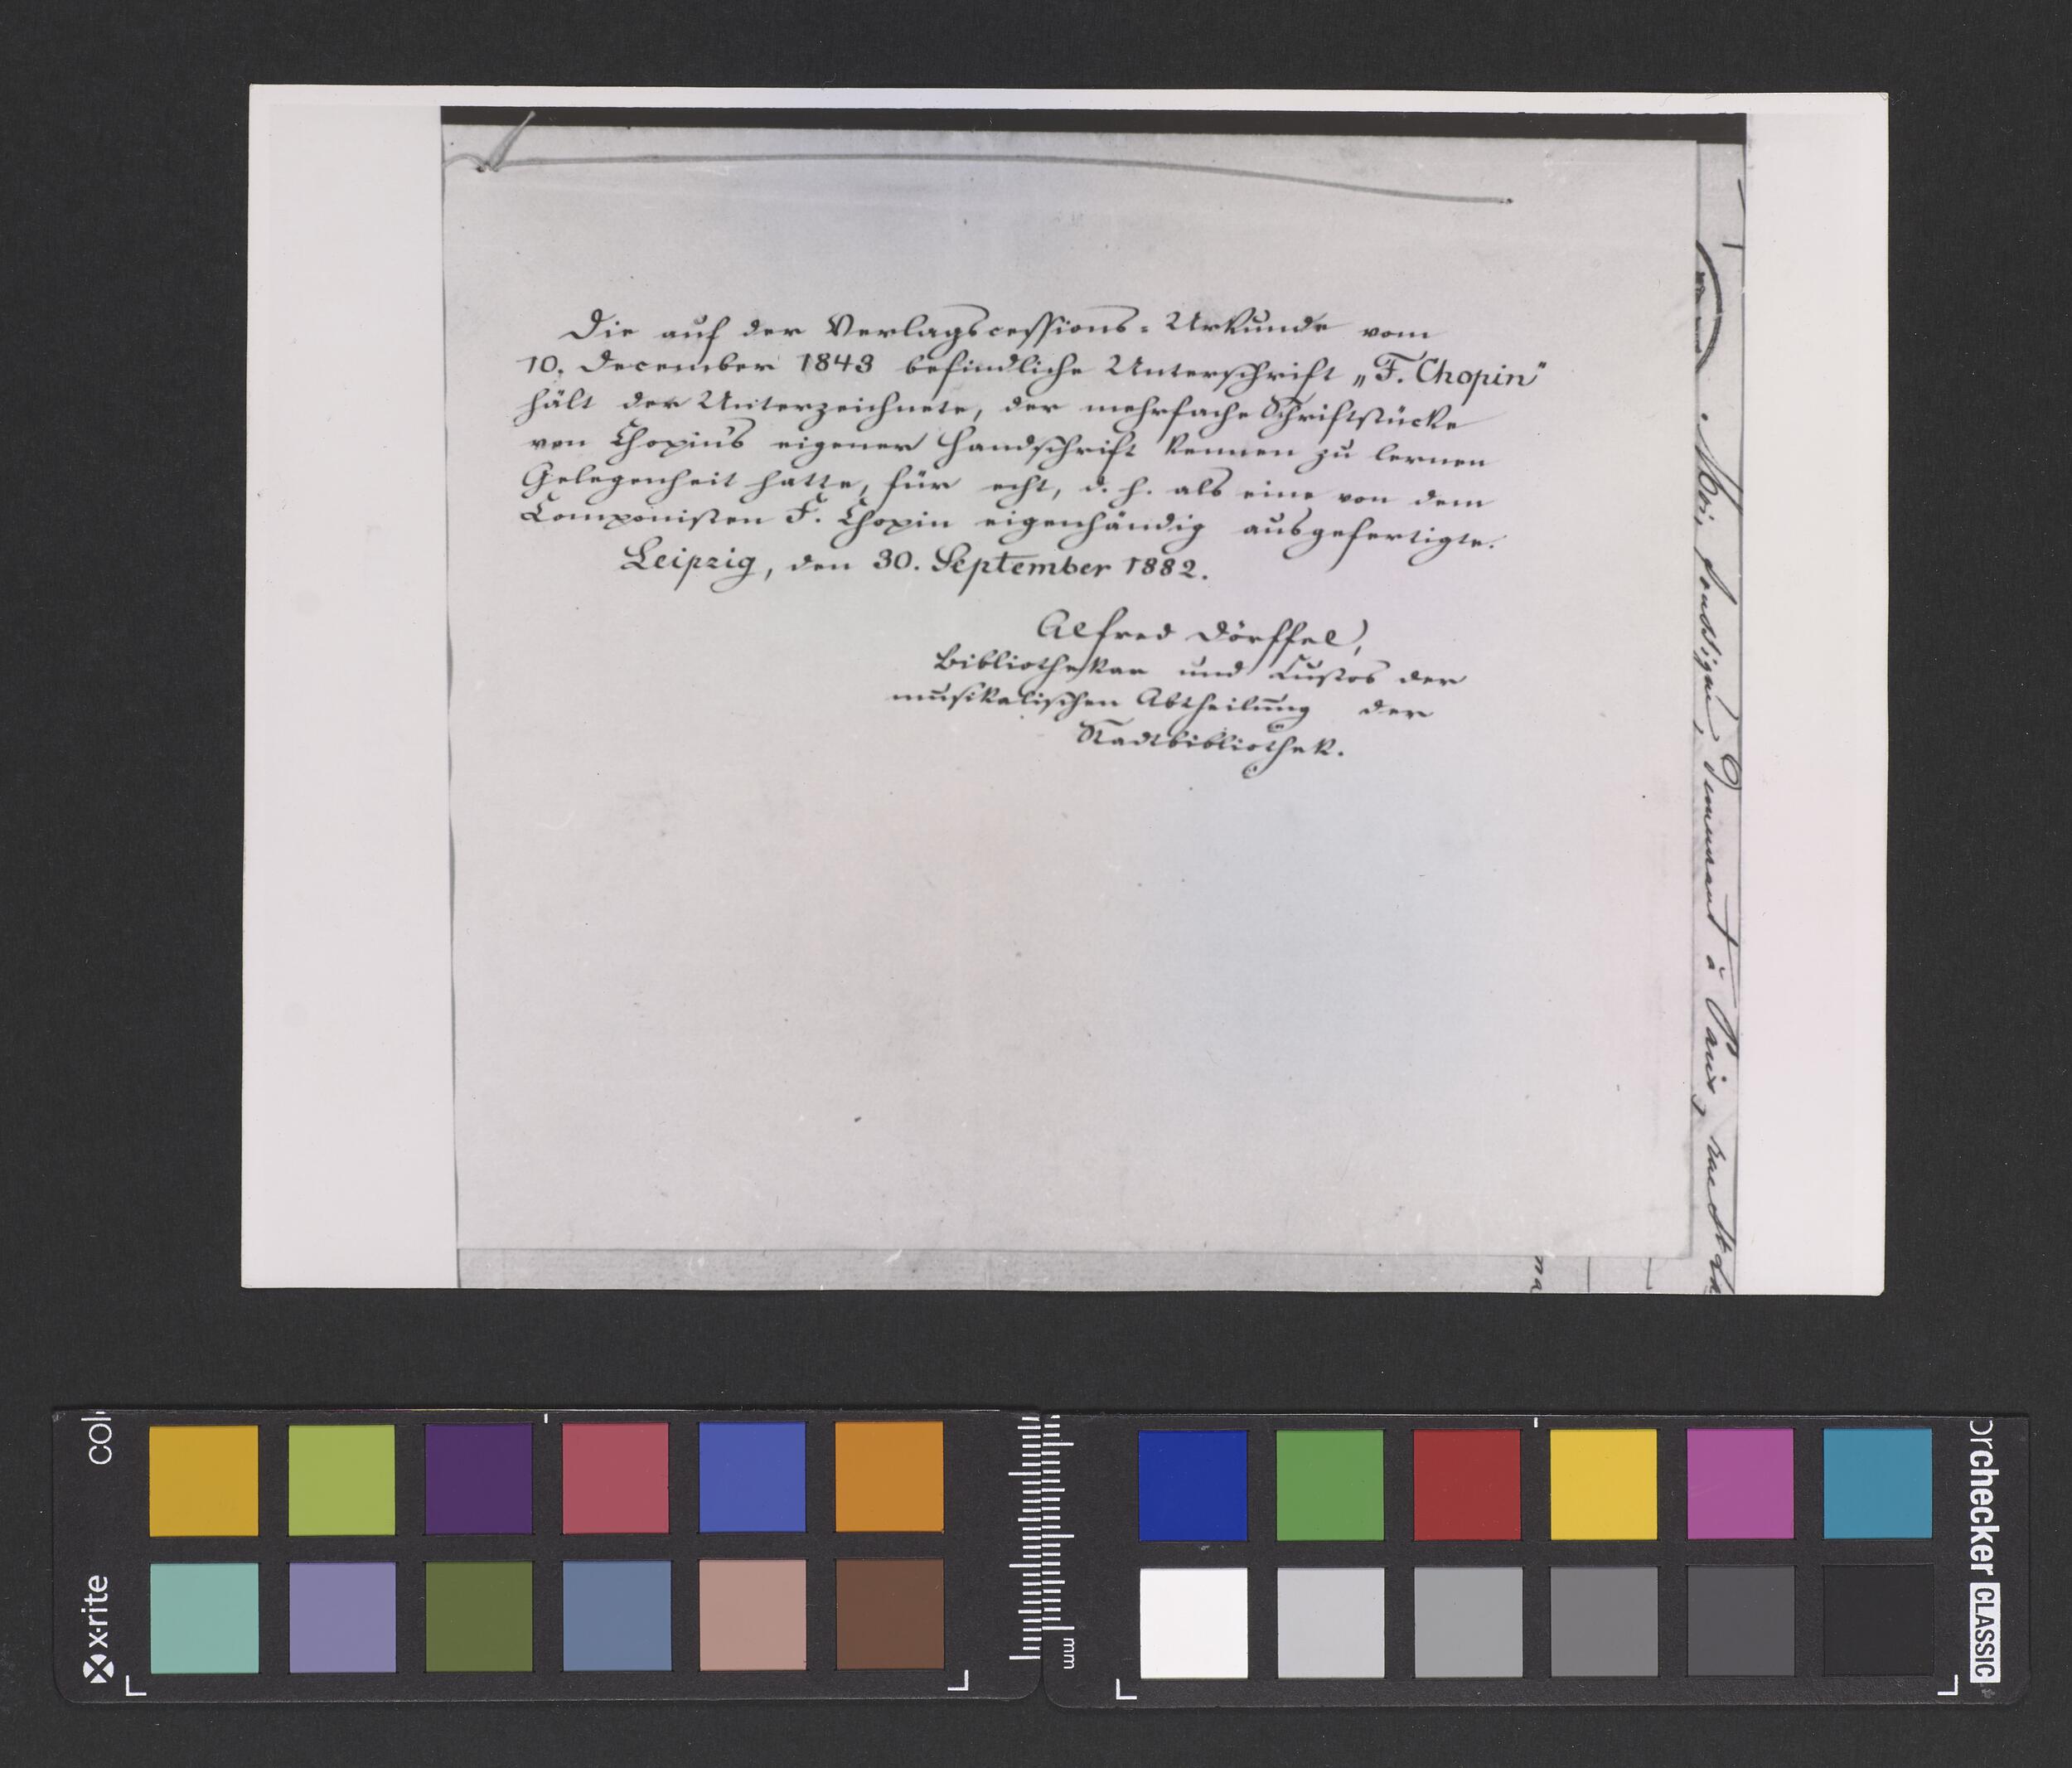 Die auf der Verlagscessions-Urkunde vom
10. December 1843 befindliche Unterschrift „F. Chopin"
hält der Unterzeichnete, der mehrfache Schriftstücke
von Chopin's eigener Handschrift kennen zu lernen
Gelegenheit hatte, für echt, d. h. als eine von dem
Componisten F. Chopin eigenhändig ausgefertigte.
Leipzig, den 30. September 1882.
Alfred Dörffel,
Bibliothekar und Custos der
musikalischen Abtheilung der
Stadtbibliothek.
Moi, soussigné, demeurant à Paris, rue St
x-rite
col
mm
orchecker CLASSIC